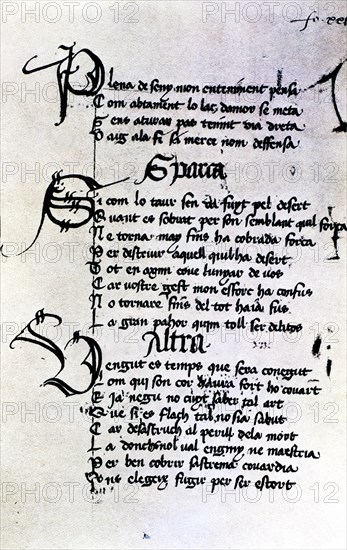 fo xxii
Plena de seny mon enteniment pensa
Com abtament lo laç damor se meta
Sens aturar pas tenint via dreta
Vaug ala fi si merce nom deffensa
Sparça
Si com lo taur sen va fuyt pel desert
Quant es sobrat per son semblant quil força
Ne torna may fins ha cobrada força
Per destruir aquell quilha desert
Tot en axim cove lunyar de vos
Car vostre gest mon esforç ha confus
No tornare fins del tot haia fus
La gran pahor quim toll ser delitos
Altra
Vengut es temps que sera conegut
Lom qui son cor haura fort ho covart
E ia negu no cuyt saber tal art
Que si es flach tal no sia sabut
Car al perill dela mort
La donchs nol val enginy ne maestria
Per ben cobrir sastrema covardia
Ans elegeix fugir per ser estort